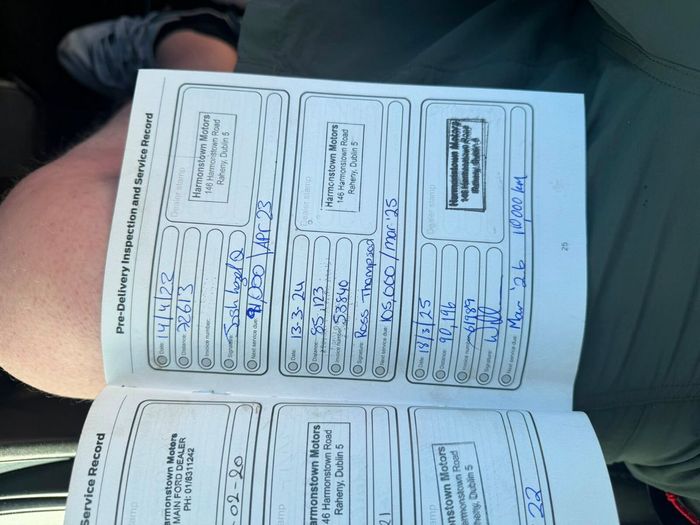 Pre-Delivery Inspection and Service Record
Dealer stamp
Harmonstown Motors
146 Harmonstown Road
Raheny, Dublin 5
Date: 14/4/22
Distance: 72613
Invoice number:
Signature:
Next service due: /APR 23
Dealer stamp
Harmonstown Motors
146 Harmonstown Road
Raheny, Dublin 5
Date: 13-3-24
Distance: 85,123
Invoice number: 53840
Signature: Ross Thompson
Next service due: 105,000/mar '25
Dealer stamp
Harmonstown Motors
146 Harmonstown Road
Raheny, Dublin 5
Date: 18/3/25
Distance: 90,196
Invoice number: 61989
Signature:
Next service due: Mar '26 110,000 km
25
Service Record
armonstown Motors
MAIN FORD DEALER
PH: 01/8311242
-02-20
amp
armonstown Motors
46 Harmonstown Road
Raheny, Dublin 5
21
mp
monstown Motors
rmonstown Road
heny, Dublin 5
22